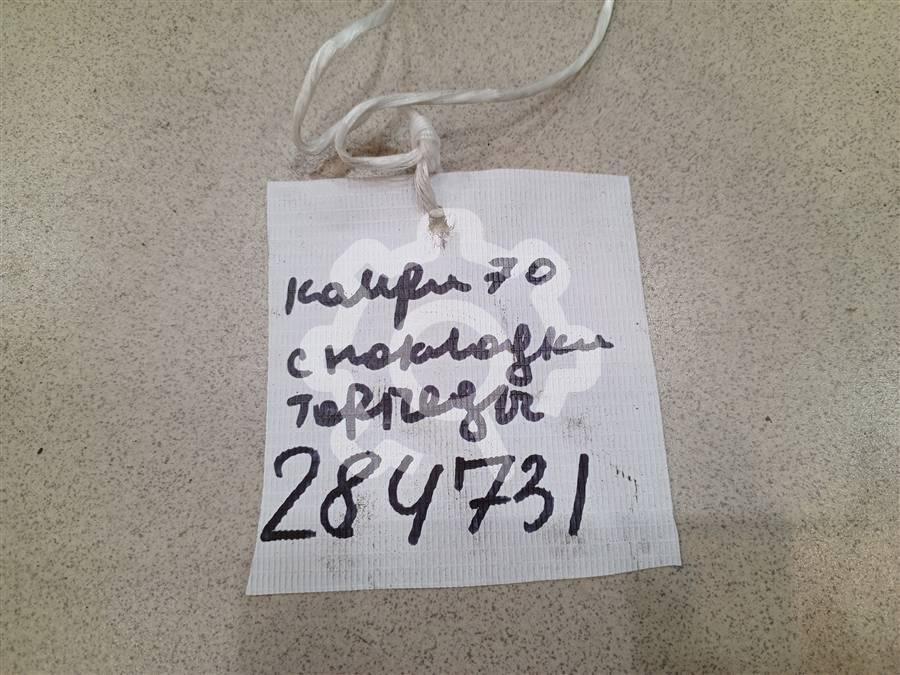 камри 70
с покладки
торпеды
284731